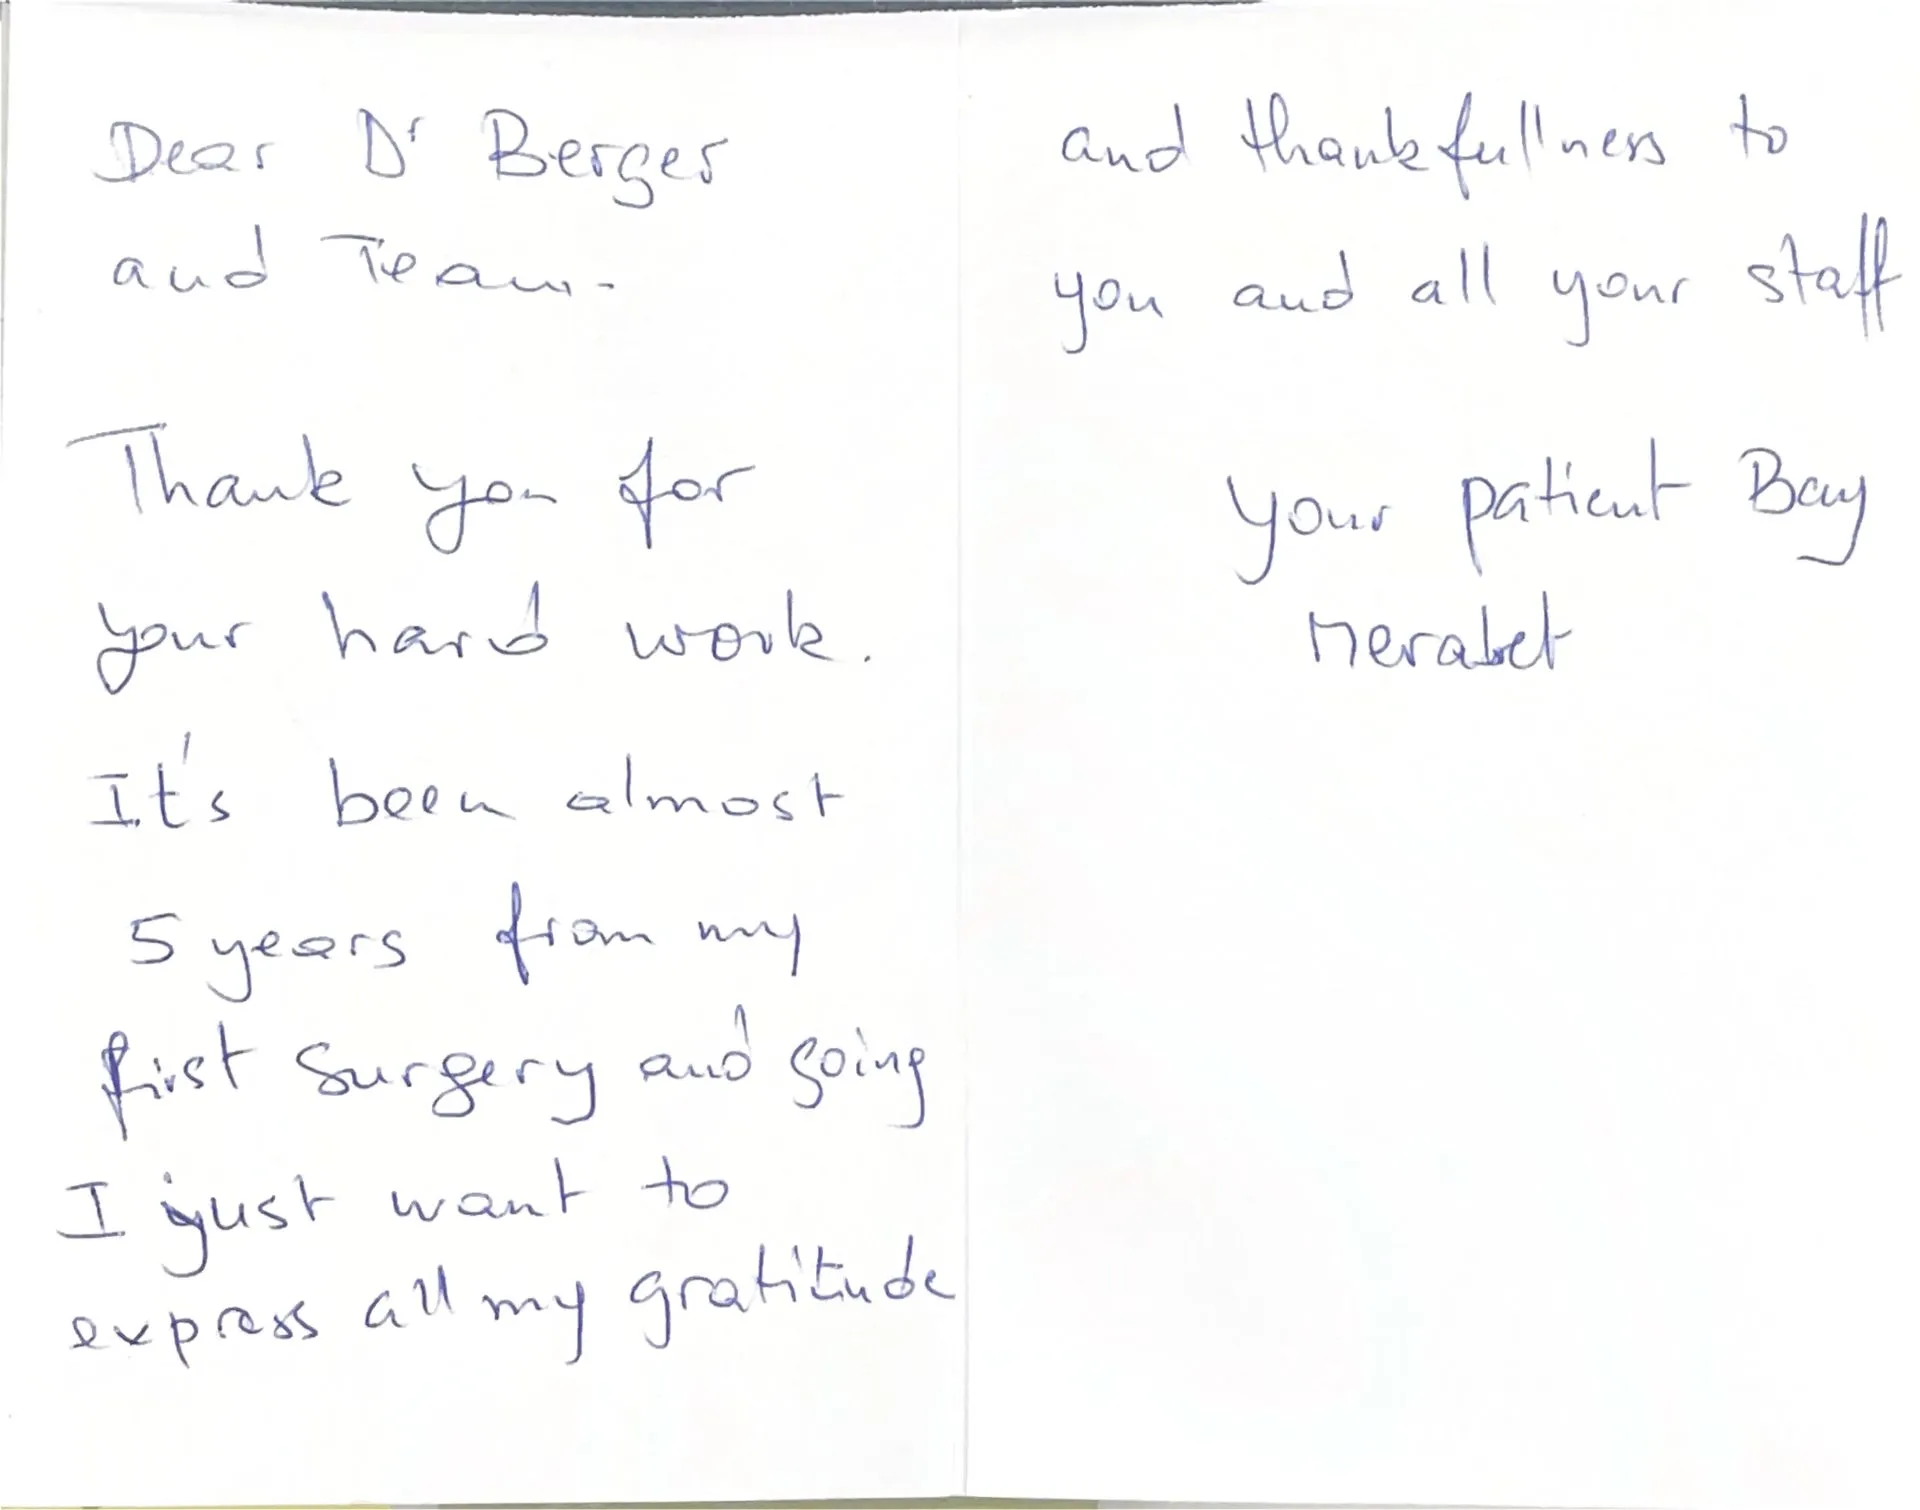 Dear Dr Berger
and Team.
Thank you for
your hard work.
It's been almost
5 years from my
first surgery and going
I just want to
express all my gratitude
and thankfull'ness to
you and all your staff
your patient Bay
Merabet